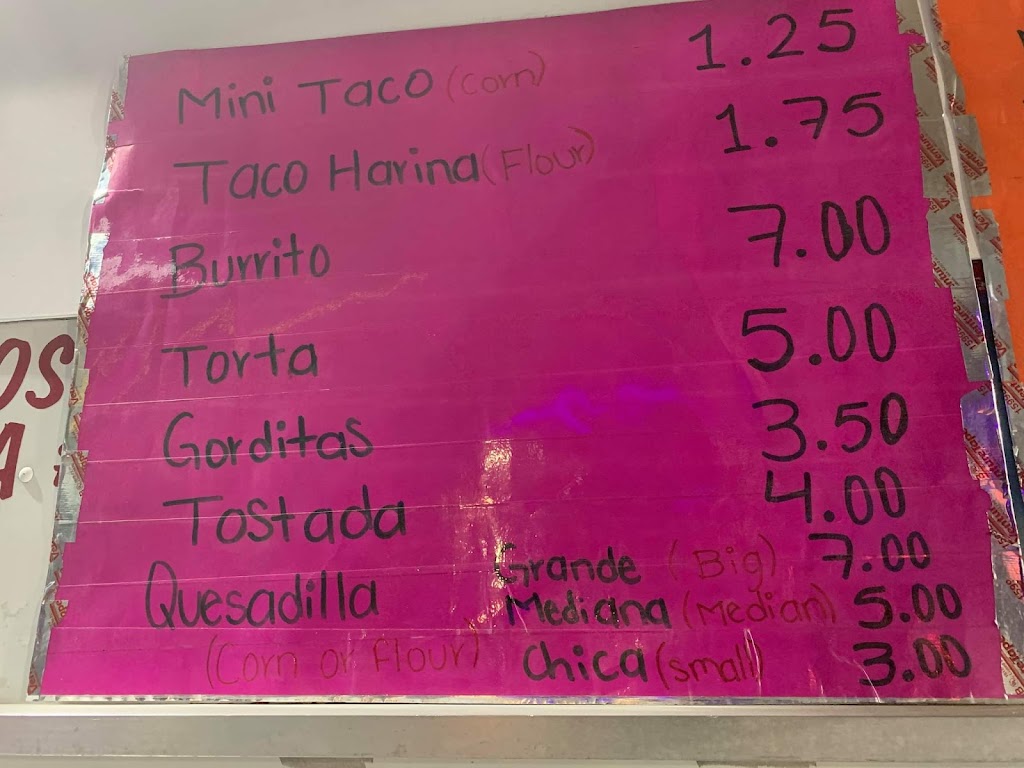 Mini Taco (Corn) 1.25
Taco Harina (Flour) 1.75
Burrito 7.00
Torta 5.00
Gorditas 3.50
Tostada 4.00
Quesadilla Grande (Big) 7.00
Mediana (Median) 5.00
(Corn or Flour) Chica (small) 3.00
OS
A